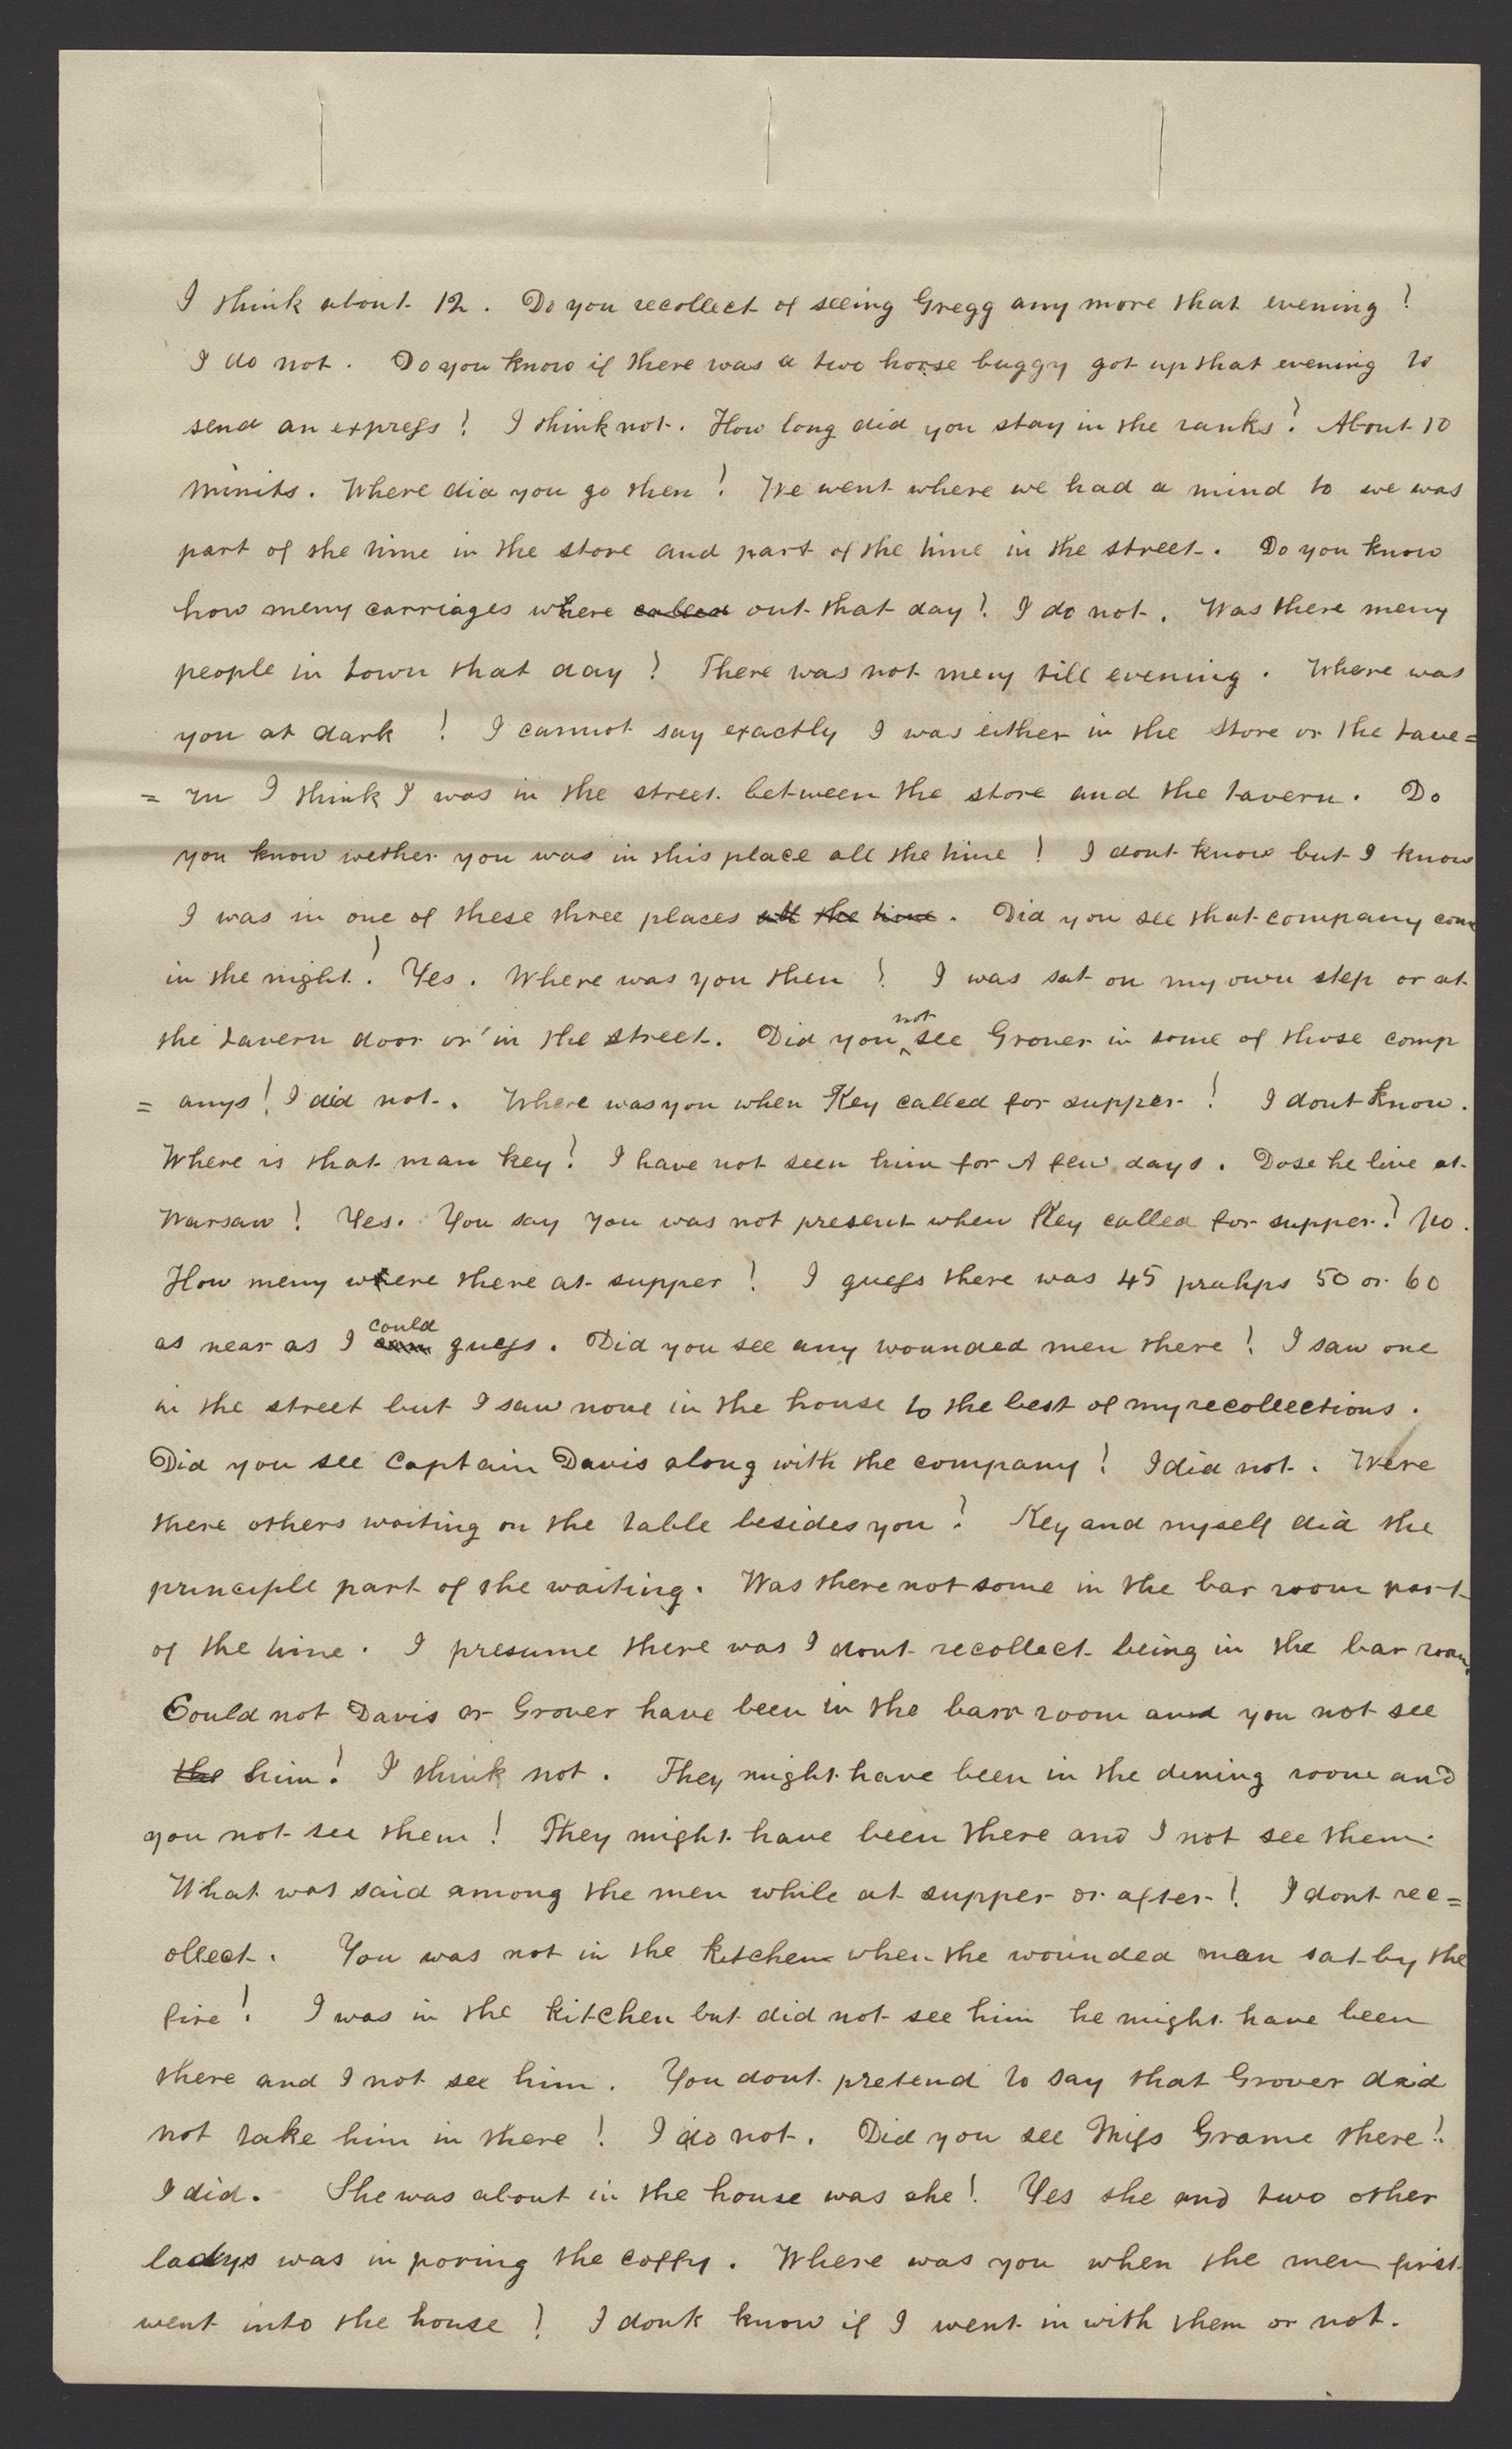 I think about 12. Do you recollect of seeing Gregg any more that evening?
I do not. Do you know if there was a two horse buggy got up that evening to
send an express? I think not. How long did you stay in the ranks? About 10
minits. Where did you go then? We went where we had a mind to we was
part of the time in the store and part of the time in the street. Do you know
how meny carriages where called out that day? I do not. Was there meny
people in town that day? There was not meny till evening. Where was
you at dark? I cannot say exactly I was either in the store or the tave=
=rn I think I was in the street between the store and the tavern. Do
you know wether you was in this place all the time? I dont know but I know
I was in one of these three places all the time. Did you see that company come
in the night? Yes. Where was you then? I was sat on my own step or at
the tavern door or in the street. Did you not see Grover in some of those comp
=anys? I did not. Where was you when Key called for supper? I dont know.
Where is that man key? I have not seen him for A few days. Dose he live at
Warsaw? Yes. You say you was not present when Key called for supper? No.
How meny were there at supper? I guess there was 45 prahps 50 or 60
as near as I can could guess. Did you see any wounded men there? I saw one
in the street but I saw none in the house to the best of my recollections.
Did you see Captain Davis along with the company? I did not. Were
there others waiting on the table besides you? Key and myself did the
principle part of the waiting. Was there not some in the bar room part
of the time. I presume there was I dont recollect being in the bar room.
Could not Davis or Grover have been in the barr room and you not see
the him? I think not. They might have been in the dining room and
you not see them? They might have been there and I not see them.
What was said among the men while at supper or after? I dont rec=
ollect. You was not in the kitchen when the wounded man sat by the
fire? I was in the kitchen but did not see him he might have been
there and I not see him. You dont pretend to say that Grover did
not take him in there? I do not. Did you see Miss Grame there?
I did. She was about in the house was she? Yes she and two other
ladys was in poring the coffy. Where was you when the men first
went into the house? I dont know if I went in with them or not.